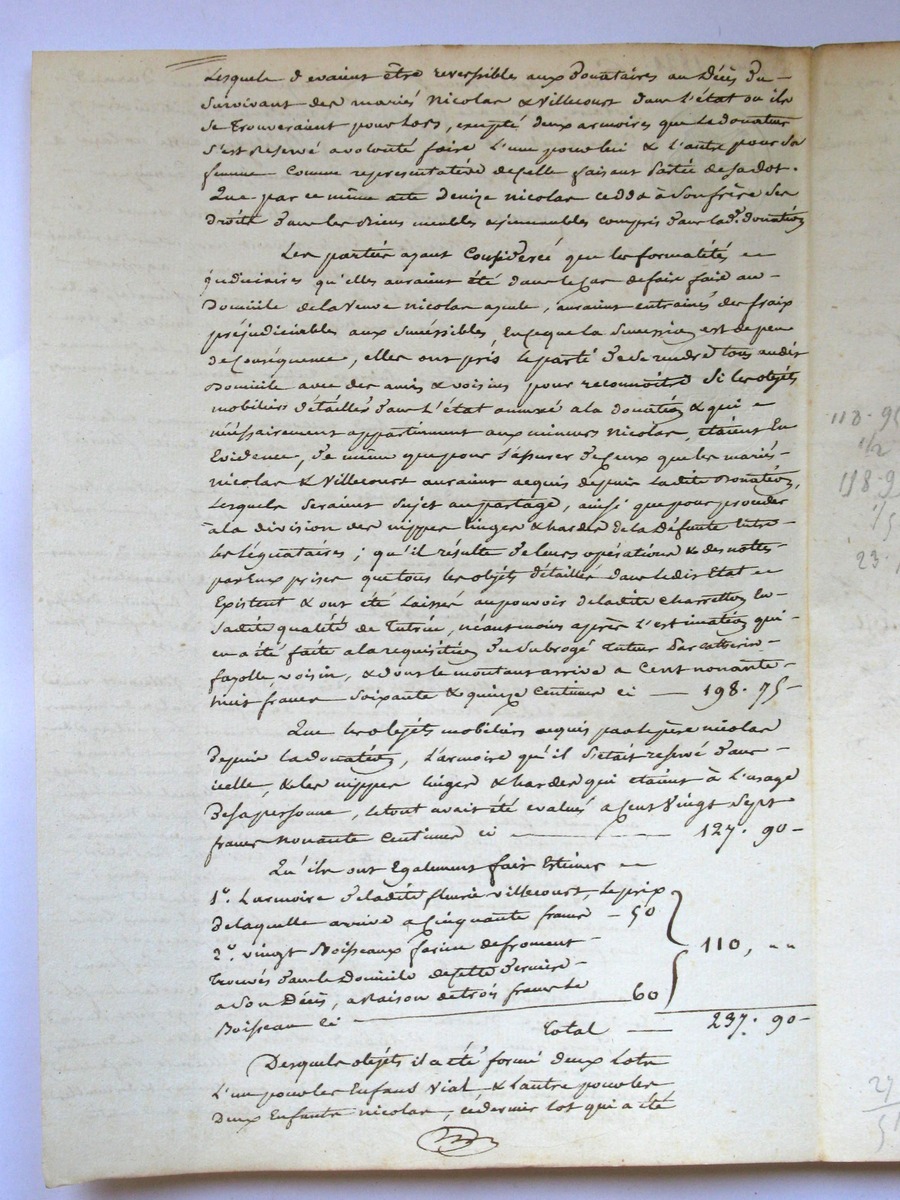 Lesquels devaient être reversibles aux donataires au Décès du
Survivant des mariés Nicolas & Villecourt dans l'état ou ils
se trouveraient pour lors, excepté deux armoires que le donateur
s'est Reservé a volonté faire l'une pour lui & l'autre pour sa
femme comme representative de celle faisant Partie de sa dot.
Que par ce même acte Denize Nicolas cedda à Son frère Ses
Droits dans les Biens meubles & immeubles compris dans lad.e donation
Les parties ayant Considéré que les formalités
judiciaires qu'elles auraient été dans le cas de faire faire au
Domicile de la Veuve Nicolas ayeule, auraient entrainés des fraix
préjudiciables aux Sucessibles, En ce que la Sucession est de peu
de Conséquence, elles ont pris le parti de se rendre tous audit
Domicile avec des amis & voisins pour reconnoitre Si les objets
mobiliers détaillés dans l'état annexé a la donation & qui
nécessairement appartiennent aux mineurs Nicolas, etaient En
Evidence, de même que pour s'assurer de Ceux que les mariés
Nicolas & Villecourt auraient acquis depuis Ladite Donation,
Lesquels seraient sujet au partage, ainsi que pour proceder
à la division des nippes linges & hardes de la Défunte Entre
les légataires; qu'il résulte de leurs opérations & des nottes
par Eux prises que tous les objets détaillés dans ledit Etat
Existent & ont été Laissés au pouvoir de ladite Charretton En
Sadite qualité de Tutrice, néantmoins après L'estimation qui
en a été faite a la requisition du Subrogé tuteur Par Catherin
fayolle, voisin, & dont le montant arrive a Cent nonante
huit francs Soixante & quinze Centimes ci — 198. 75
Que les objets mobiliers acquis par le père Nicolas
depuis la donation, L'armoire qu'il s'était reservé dans
icelle, & les nippes linges & hardes qui etaient à L'usage
De sa personne, le tout avait été evalués a Cent Vingt Sept
francs nonante Centimes ci — 127. 90
Qu'ils ont Egalement fait Estimer
1.º L'armoire de ladite fleurie Villecourt, Le prix
de laquelle arrive a Cinquante francs — 50
110, "
2.º vingt Boisseaux farine de froment
Trouvés dans le Domicile de cette dernière
a Son Décès, a Raison de trois francs le
Boisseau ci — 60
Total — 237. 90
Desquels objets il a été formé deux Lots
L'un pour les Enfans Vial & L'autre pour les
Deux Enfants Nicolas, ce dernier lot qui a été
118. 9
1/2
118. 9
1/5
23.
27
5